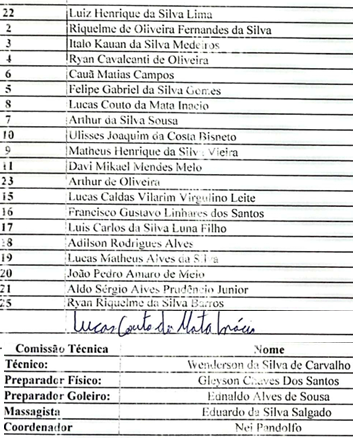 22 Luiz Henrique da Silva Lima
2 Riquelme de Oliveira Fernandes da Silva
3 Italo Kauan da Silva Medeiros
4 Ryan Cavalcanti de Oliveira
6 Cauã Matias Campos
5 Felipe Gabriel da Silva Gomes
8 Lucas Couto da Mata Inacio
7 Arthur da Silva Sousa
10 Ulisses Joaquim da Costa Bisneto
9 Matheus Henrique da Silva Vieira
11 Davi Mikael Mendes Melo
23 Arthur de Oliveira
15 Lucas Caldas Vilarim Virgulino Leite
16 Francisco Gustavo Linhares dos Santos
17 Luis Carlos da Silva Luna Filho
18 Adilson Rodrigues Alves
19 Lucas Matheus Alves da Silva
20 João Pedro Amaro de Melo
21 Aldo Sérgio Alves Prudêncio Junior
25 Ryan Riquelme da Silva Barros
Lucas Couto da Mata Inácio
Comissão Técnica Nome
Técnico: Wenderson da Silva de Carvalho
Preparador Físico: Gleyson Chaves Dos Santos
Preparador Goleiro: Ednaldo Alves de Sousa
Massagista Eduardo da Silva Salgado
Coordenador Nei Pandolfo